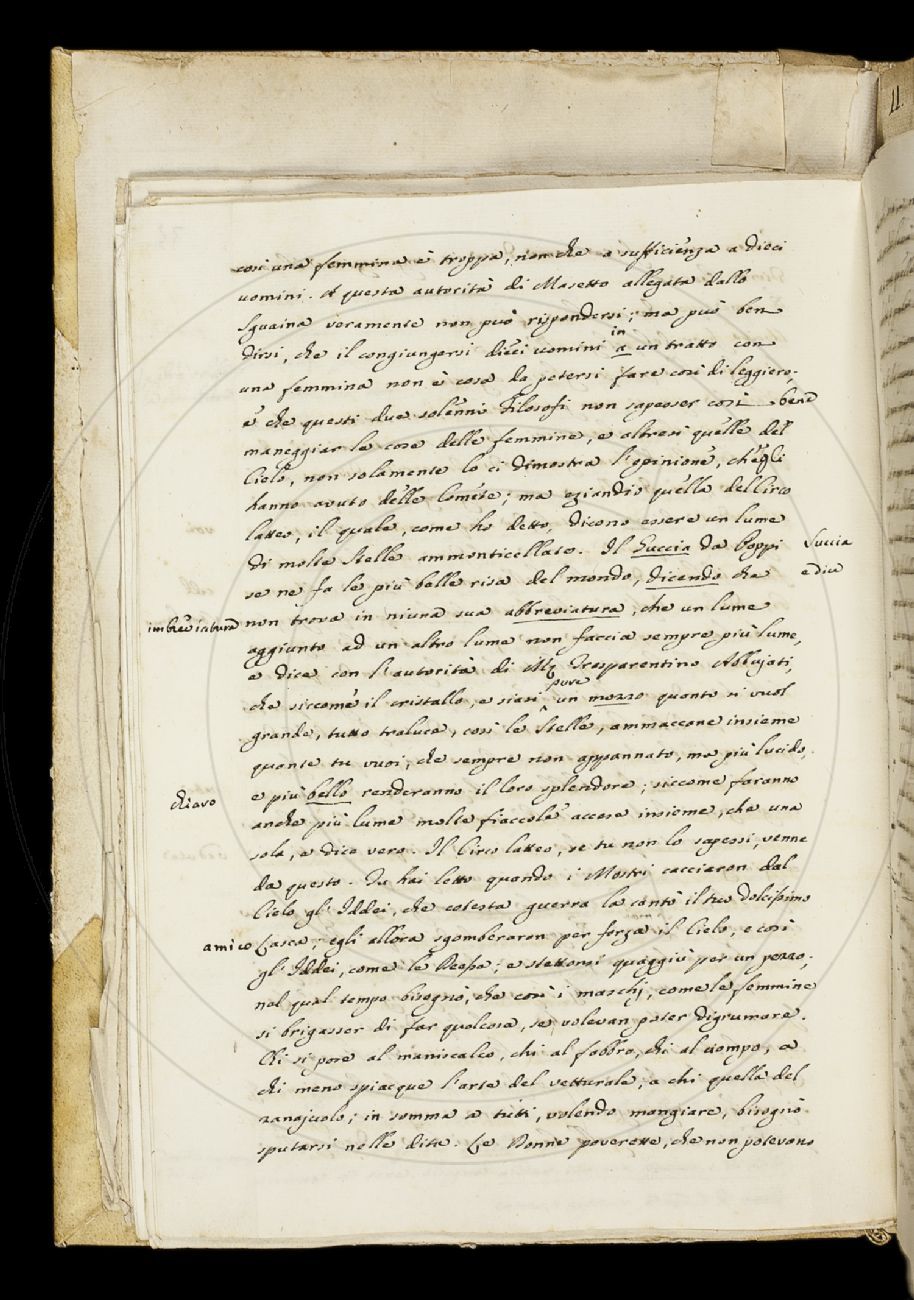 così una femmina è troppa, non che a sufficienza a dieci
uomini. A questa autorità di Masetto allegata dallo
Sguaina veramente non può rispondersi; ma può ben
dirsi, che il congiungersi dieci uomini in a un tratto con
una femmina non è cosa da potersi fare così di leggiero;
e che questi due solenni Filosofi non sapesser così bene
maneggiar le cose delle femmine, e altresì quelle del
Cielo, non solamente lo ci dimostra l'opinione, ch'egli
hanno avuto delle Comete; ma eziandio quella del Circo
latteo, il quale, come ho detto, dicono essere un lume
di molte Stelle ammonticellate. Il Suecia da Poppi
Succia
se ne fa le più belle risa del mondo, dicendo che
e dice
imbreviatura
non trova in niuna sua abbreviatura, che un lume
aggiunto ad un altro lume non faccia sempre più lume,
e dice con l'autorità di Trasparentino Abbujati,
che siccome il cristallo, e siasi pure un mezzo quanto si vuol
grande, tutto traluce, così le Stelle, ammaccane insieme
quante tu vuoi, che sempre non appannato, ma più lucido,
chiaro
e più bello renderanno il loro splendore; siccome faranno
anche più lume molte fiaccole accese insieme, che una
sola, e dice vero. Il Circo latteo, se tu non lo sapessi, venne
da questo. Tu hai letto quando i Mostri cacciaron dal
Cielo gl'Iddei, che cotesta guerra la cantò il tuo dolcissimo
amico
Lasca; egli allora sgomberaron per forza il Cielo, e così
gl'Iddei, come le Deesse; e stettonsi quaggiù per un pezzo;
nel qual tempo bisognò, che così i maschj, come le femmine
si brigasser di far qualcosa, se volevan poter digrumare.
Chi si pose al maniscalco, chi al fabbro, chi al ciompo, e a
chi meno spiacque l'arte del vetturale, a chi quella del
zanajuolo; in somma a tutti, volendo mangiare, bisognò
sputarsi nelle dita. Le Donne poverette, che non potevano